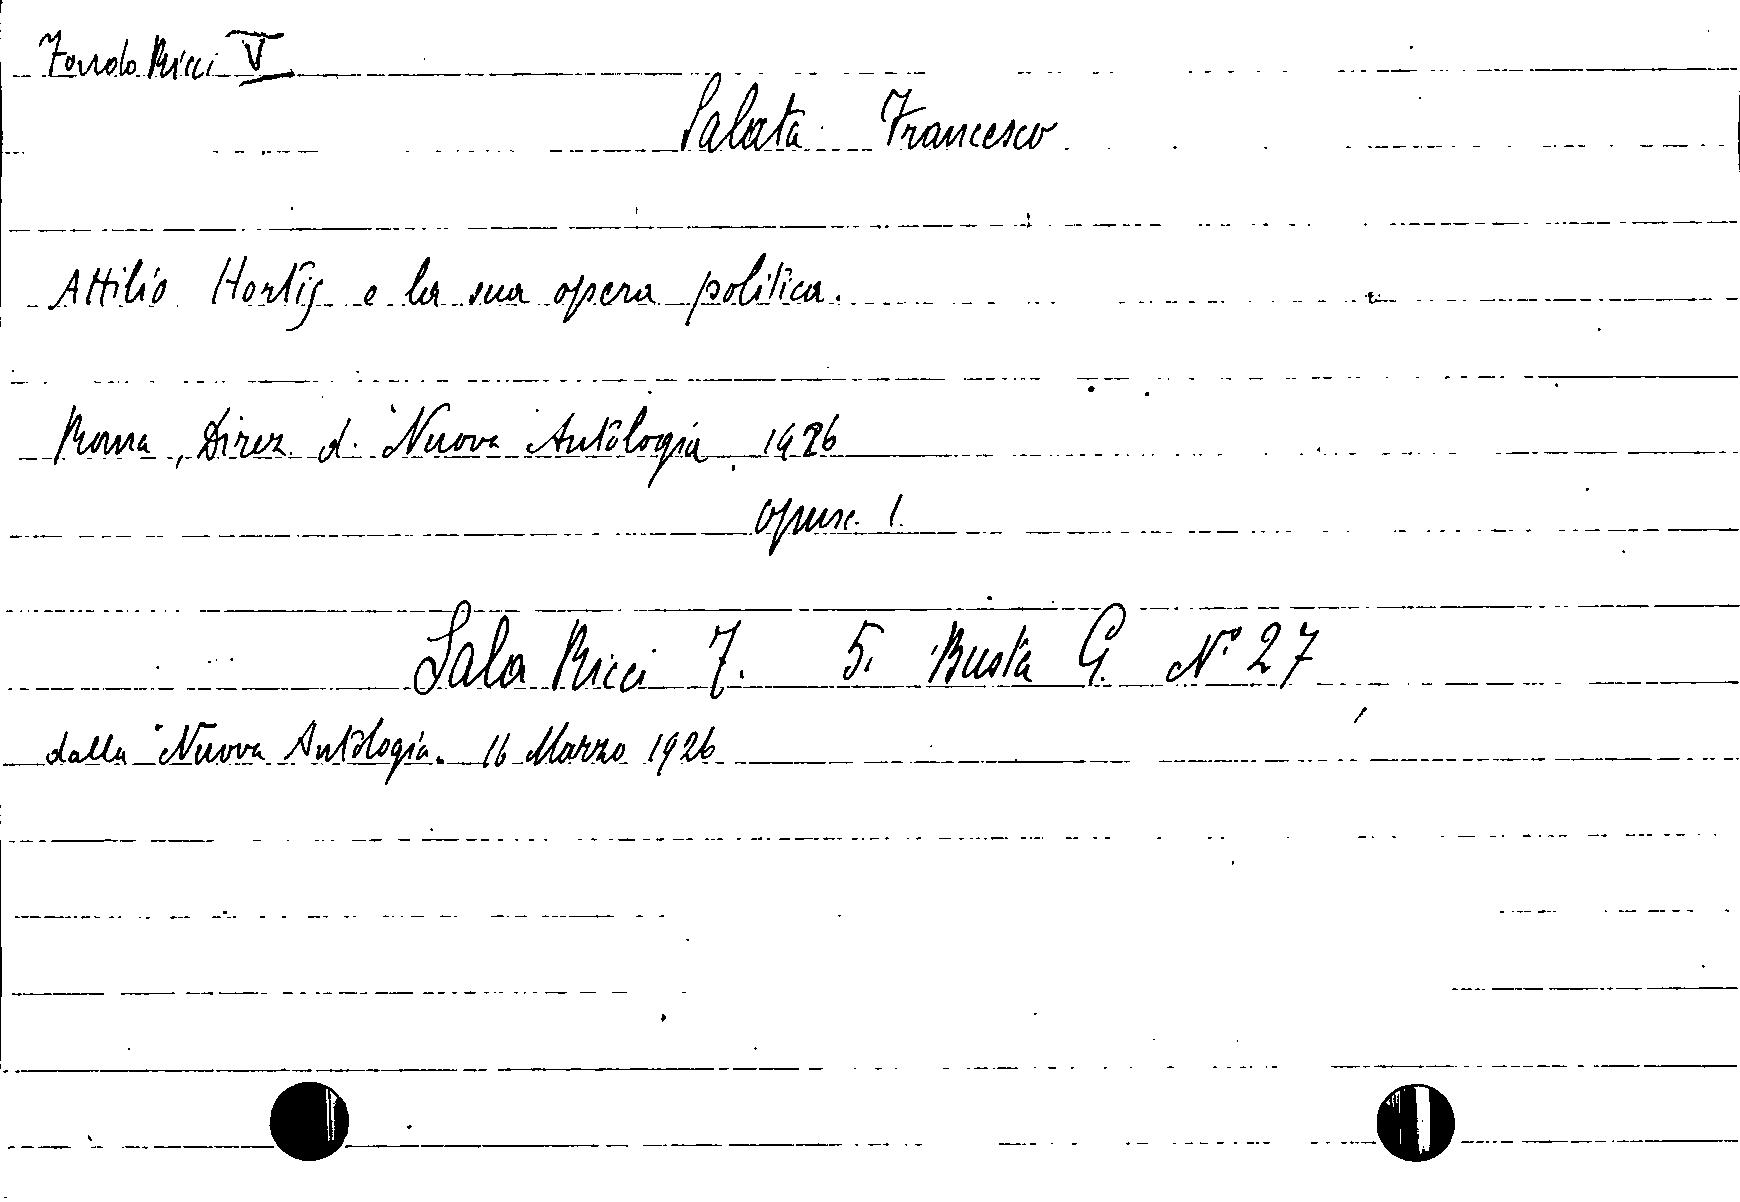 Fondo Ricci V
Salata Francesco
Attilio Hortis e la sua opera politica.
Roma, Direz. d. Nuova Antologia 1926
opusc. 1.
Sala Ricci 7. 5. Busta G. N° 27
dalla Nuova Antologia. 16 Marzo 1926